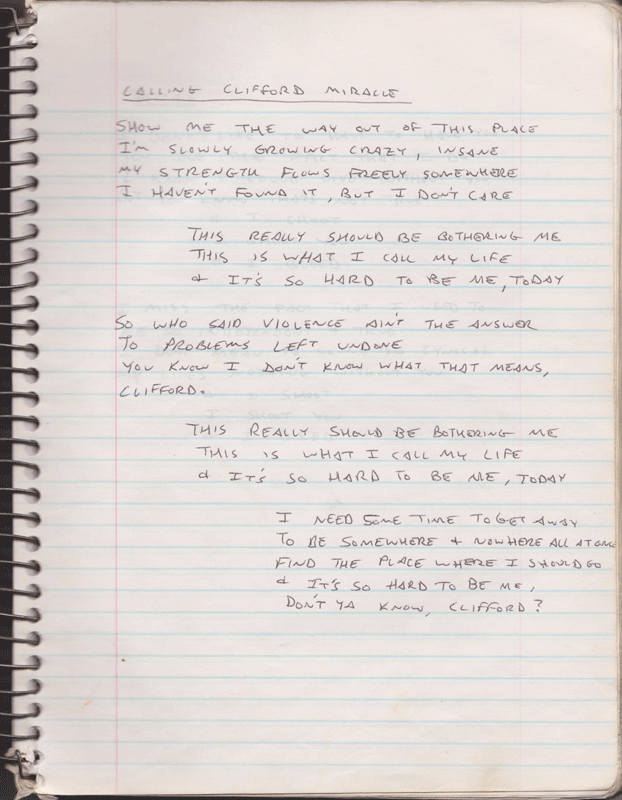 CALLING CLIFFORD MIRACLE
SHOW ME THE WAY OUT OF THIS PLACE
I'M SLOWLY GROWING CRAZY, INSANE
MY STRENGTH FLOWS FREELY SOMEWHERE
I HAVEN'T FOUND IT, BUT I DON'T CARE
THIS REALLY SHOULD BE BOTHERING ME
THIS IS WHAT I CALL MY LIFE
& IT'S SO HARD TO BE ME, TODAY
SO WHO SAID VIOLENCE AIN'T THE ANSWER
TO PROBLEMS LEFT UNDONE
YOU KNOW I DON'T KNOW WHAT THAT MEANS,
CLIFFORD.
THIS REALLY SHOULD BE BOTHERING ME
THIS IS WHAT I CALL MY LIFE
& IT'S SO HARD TO BE ME, TODAY
I NEED SOME TIME TO GET AWAY
TO BE SOMEWHERE & NOWHERE ALL AT ONCE
FIND THE PLACE WHERE I SHOULD GO
& IT'S SO HARD TO BE ME,
DON'T YA KNOW, CLIFFORD?